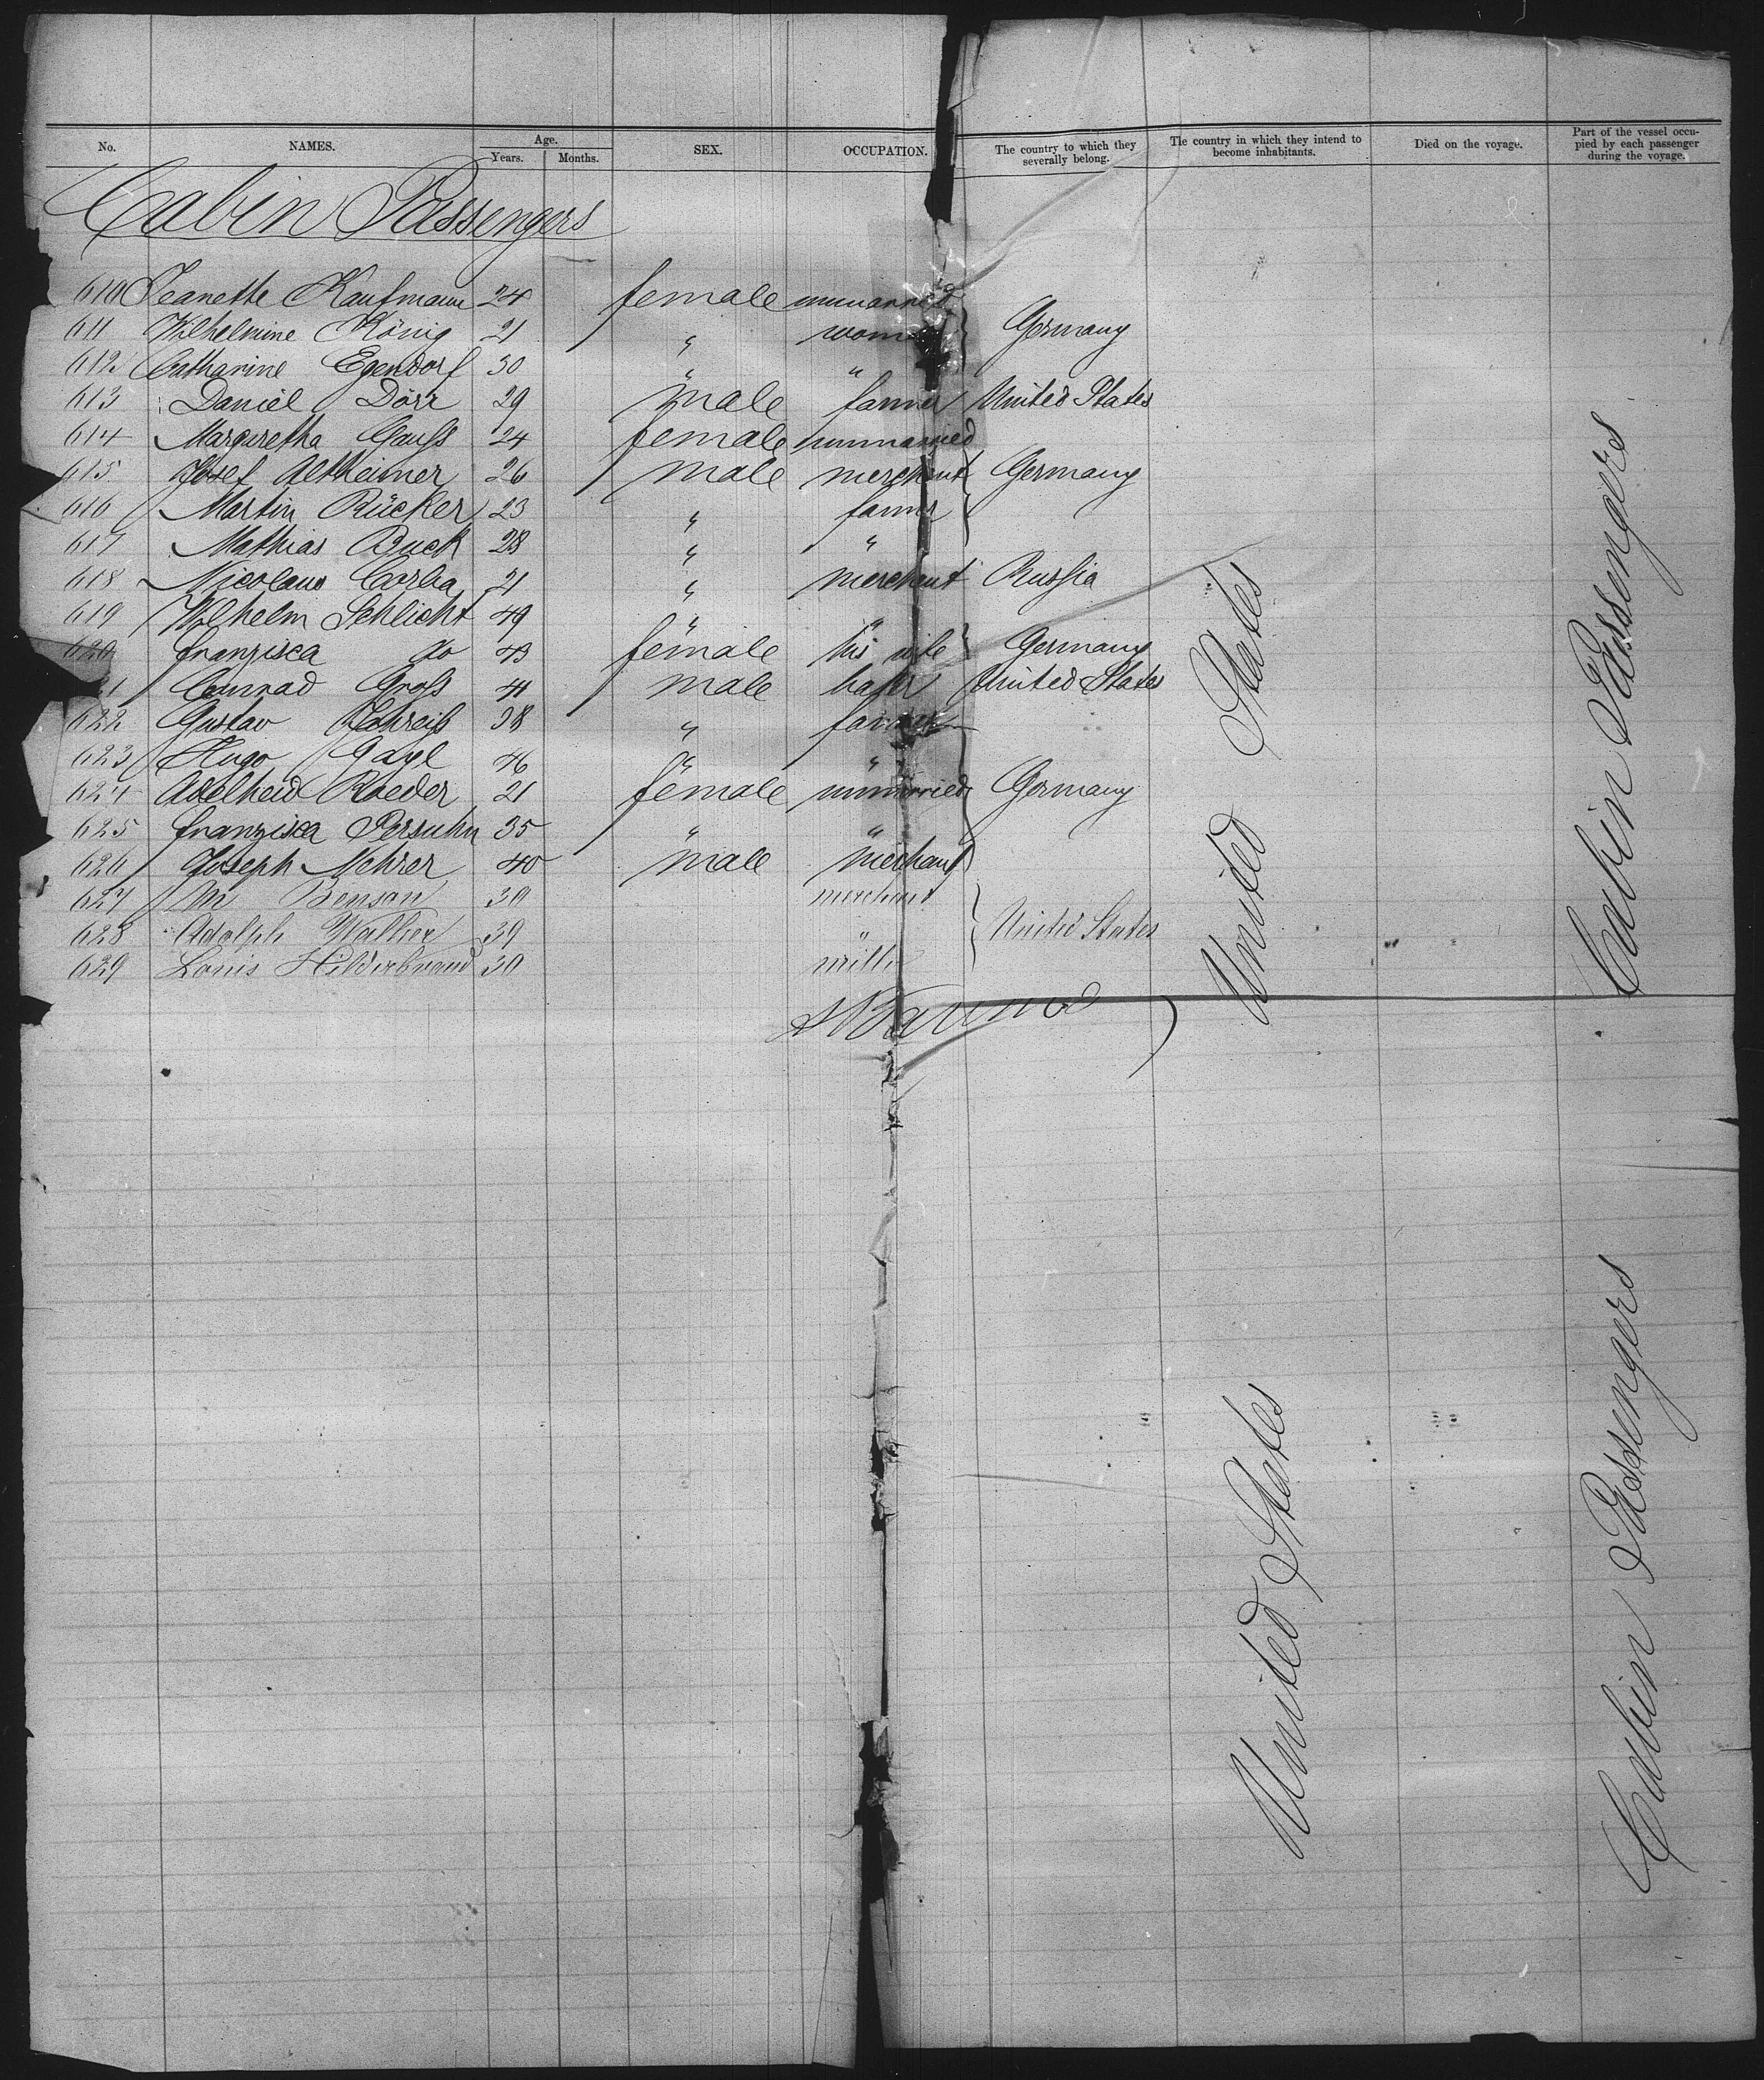 No. NAMES. Age. Years. Months. SEX. OCCUPATION. The country to which they severally belong. The country in which they intend to become inhabitants. Died on the voyage. Part of the vessel occupied by each passenger during the voyage.
Cabin Passengers
610 Jeanette Kaufmann 24 female unmarried
611 Wilhelmine König 21 " woman Germany
612 Catharine Egendorf 30 " "
613 Daniel Dörr 29 male farmer United States
614 Margaretha Gauss 24 female unmarried
615 Josef Altheimer 26 male merchant Germany
616 Martin Rücker 23 " farmer
617 Mathias Buck 28 " "
618 Nicolaus Corba 21 " merchant Russia
619 Wilhelm Schlicht 49 " "
620 Franzisca do 43 female his wife Germany
Conrad Gross 41 male United States
622 Gustav 38 " farmer
623 Hugo Gayl 46 " "
624 Adelheid Roeder 21 female unmarried Germany
625 Franzisca Persuhn 35 " "
626 Joseph Mehrer 40 male merchant
627 Mr Benson 30 merchant
628 Adolph Walther 39 " United States
629 Louis Hilderbrand 30
United States
Cabin Passengers
United States
Cabin Passengers